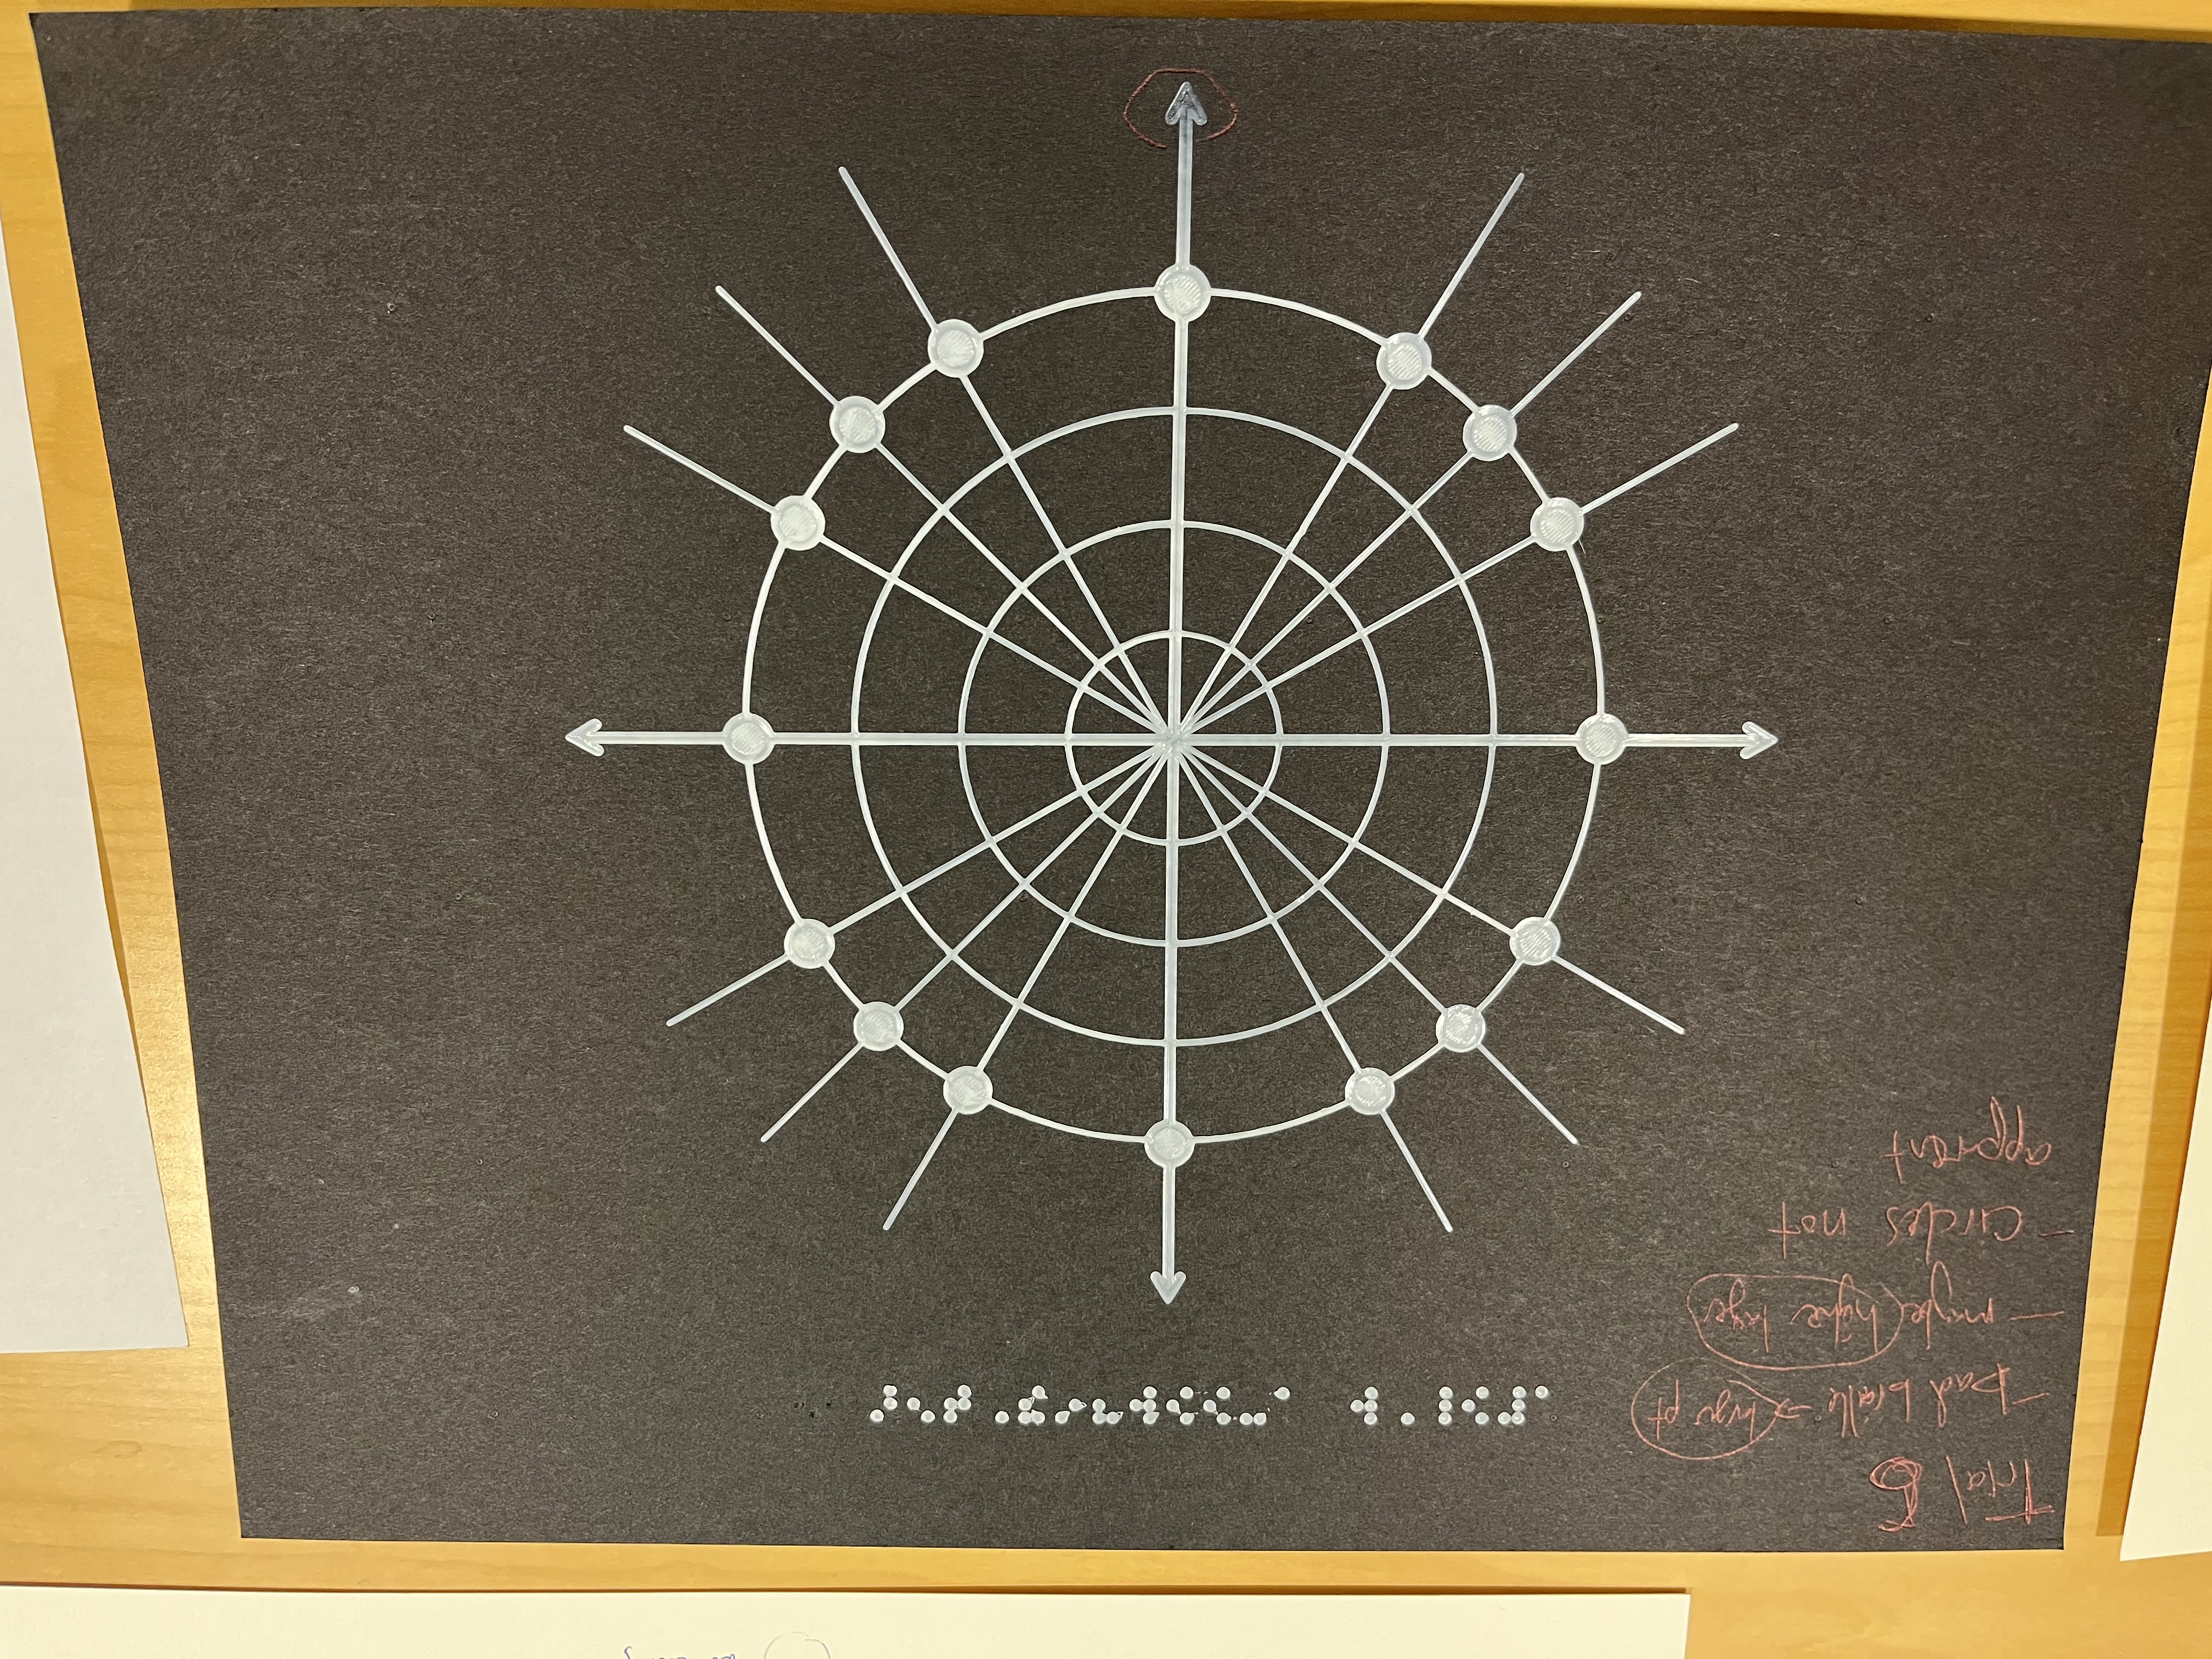 Trial 6
⠠⠏⠕⠇⠁⠗ ⠠⠉⠕⠕⠗⠙⠊⠝⠁⠞⠑⠎
- bad braille → larger pt
- maybe higher layer
- circles not
apparent